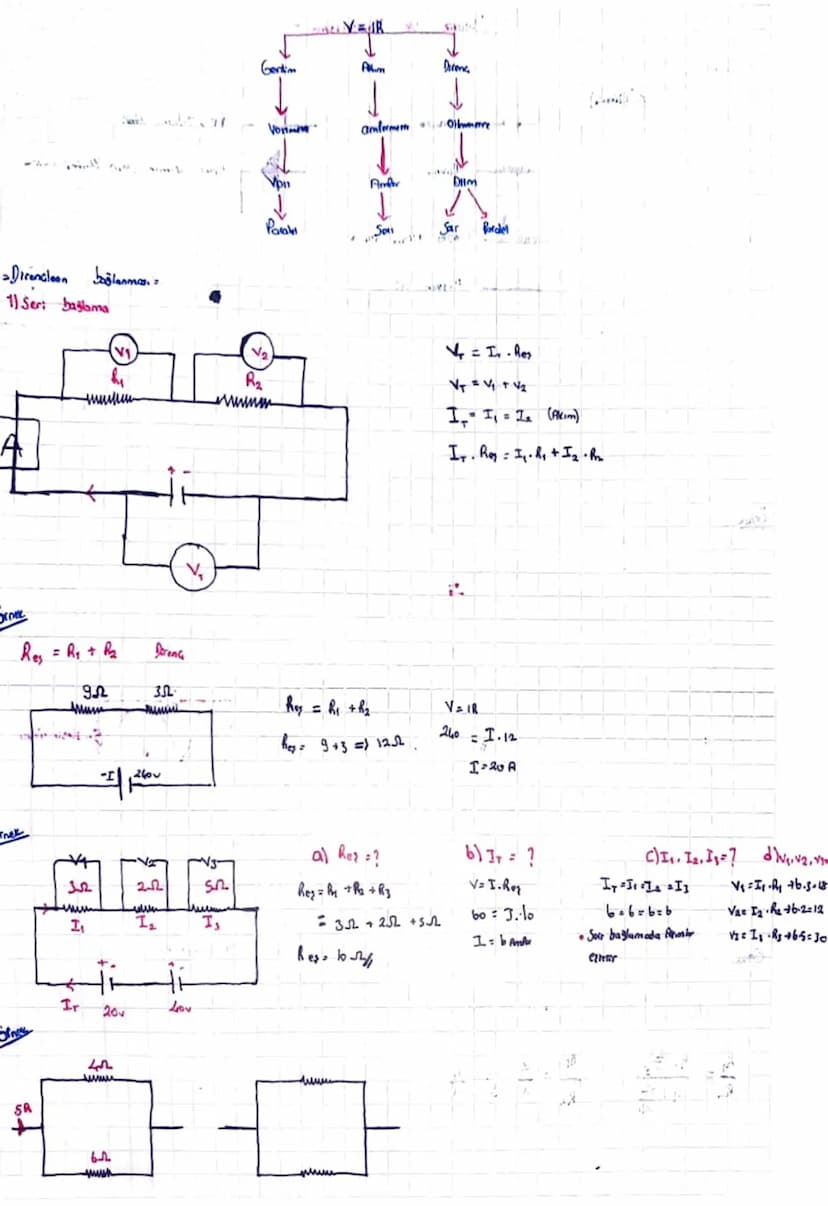 V = IR
Gerilim Akım Direnç
Voltmetre amfermetre Ohmmetre
Volt Amfer Ohm
Paralel Seri Seri Paralel
=Dirençlerin bağlanması:
1) Seri bağlama
V1 V2
R1 R2
A
+ -
VT
VT = IT . Reş
VT = V1 + V2
IT = I1 = I2 (Akım)
IT . Reş = I1 . R1 + I2 . R2
Örnek
Reş = R1 + R2 Direnç
9Ω 3Ω
240v
Reş = R1 + R2
Reş = 9+3 => 12Ω
V = IR
240 = I.12
I = 20 A
Örnek
V1 V2 V3
3Ω 2Ω 5Ω
I1 I2 I3
+ - + -
IT 20v 40v
a) Reş = ?
Reş = R1 + R2 + R3
= 3Ω + 2Ω + 5Ω
Reş = 10Ω
b) IT = ?
V = I.Reş
60 = I.10
I = 6 Amfer
c) I1, I2, I3 = ?
IT = I1 = I2 = I3
6 = 6 = 6 = 6
• Seri bağlamada Akımlar
eşittir
d) V1, V2, V3
V1 = I1 . R1 → 6.3 = 18
V2 = I2 . R2 → 6.2 = 12
V3 = I3 . R3 → 6.5 = 30
Örnek
4Ω
5A
6Ω